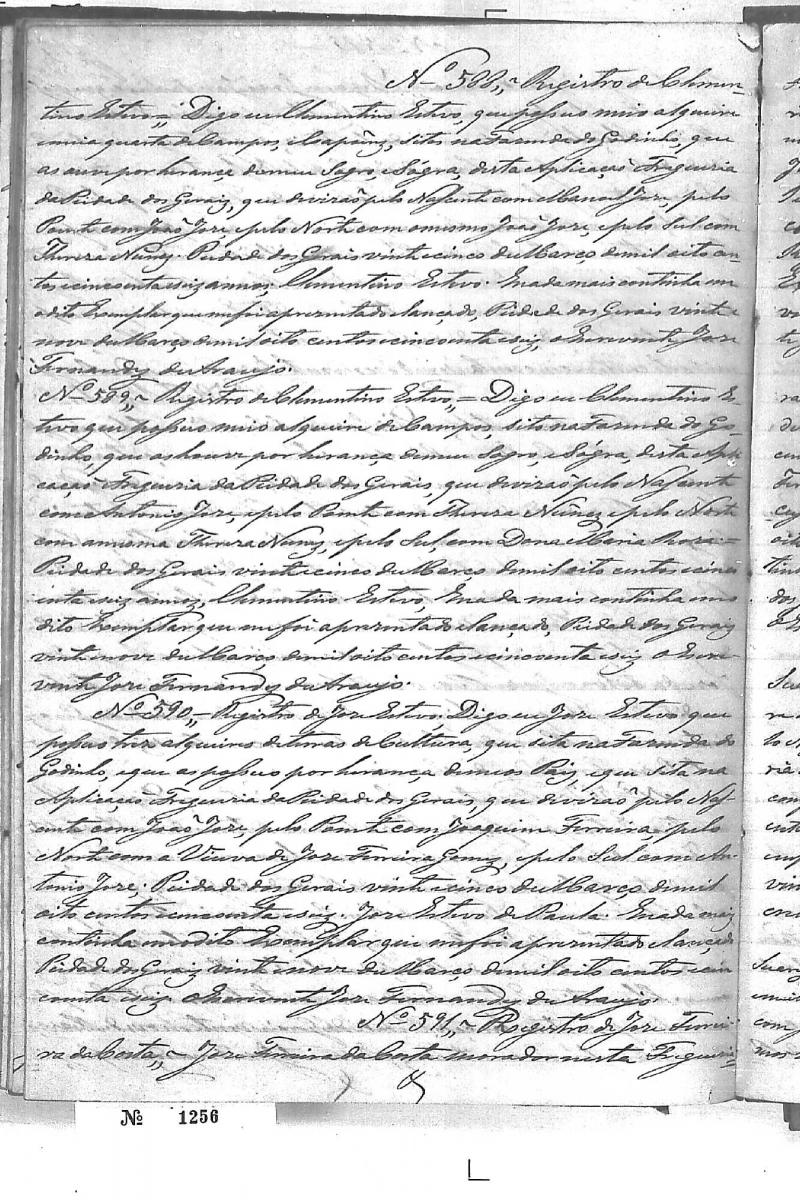 Nº 588,, ~ Registro de Clemen-
tino Estevo =,, Digo eu Clementino Estevo, que possuo meio alqueire
e meia quarta de Campos, e Capões, sitos na Fazenda do Godinho, que
as ouve por herança de meu Sogro, e Sógra, desta Aplicação Freguezia
da Piedade dos Geraiz, que devizaõ pelo Nascente com Manoel Joze, pelo
Poente com João Joze, e pelo Norte com o mesmo Joaõ Joze, e pelo Sul com
Thereza Nunez. Piedade dos Gerais vinte e cinco de Março de mil oito cen-
tos e cincoenta e seiz annos, Clementino Estevo. E nada mais continha em
o dito Exemplar que me foi aprezentado e lançado, Piedade dos Gerais vinte e
nove de Março de mil oito centos e cincoenta e seiz, o Escrevente Joze
Fernandez de Araujo.
Nº 589,, ~ Registro de Clementino Estevo,, = Digo eu Clementino Es-
tevo que possuo meio alqueire de Campos, sito na Fazenda do Go-
dinho, que as houve por herança de meu Sogro, e Sógra, desta Apli
cação Freguezia da Piedade dos Gerais, que devizaõ pelo Nascente
com Antonio Joze, e pelo Poente com Thereza Nunez e pelo Norte
com a mesma Thereza Nunez, e pelo Sul, com Dona Maria Roza =
Piedade dos Gerais vinte e cinco de Março de mil oito centos e cinco
enta e seiz annoz, Clementino Estevo, E nada mais continha em o
dito Exemplar que me foi aprezentado e lançado, Piedade dos Geraiz
vinte e nove de Março de mil oito centos e cincoenta e seiz o Escre-
vente Joze Fernandez de Araujo.
Nº 590,, ~ Registro de Joze Estevo. Digo eu Joze Estevo que
possuo trez alqueires de terras de Cultura, que sita na Fazenda do
Godinho, e que as possuo por herança de meos Páiz, e que sita na
Aplicação Freguezia da Piedade dos Gerais, que devizaõ pelo Nas-
cente com Joaõ Joze, pelo Poente com Joaquim Ferreira, pelo
Norte com a Viuva de Joze Ferreira Gomez, e pelo Sul com An-
tonio Joze; Piedade dos Gerais vinte e cinco de Março de mil
oito centos e cincoenta e seiz. Joze Estevo de Paula. E nada maiz
continha em o dito Exemplar que me foi aprezentado e lançado
Piedade dos Geraiz vinte e nove de Março de mil oito centos e cin
coenta e seiz o Escrevente Joze Fernandez de Araujo.
Nº 591,, ~ Registro de Joze Ferrei-
ra da Costa,, ~ Joze Ferreira da Costa morador nesta Freguezia
Nº 1256